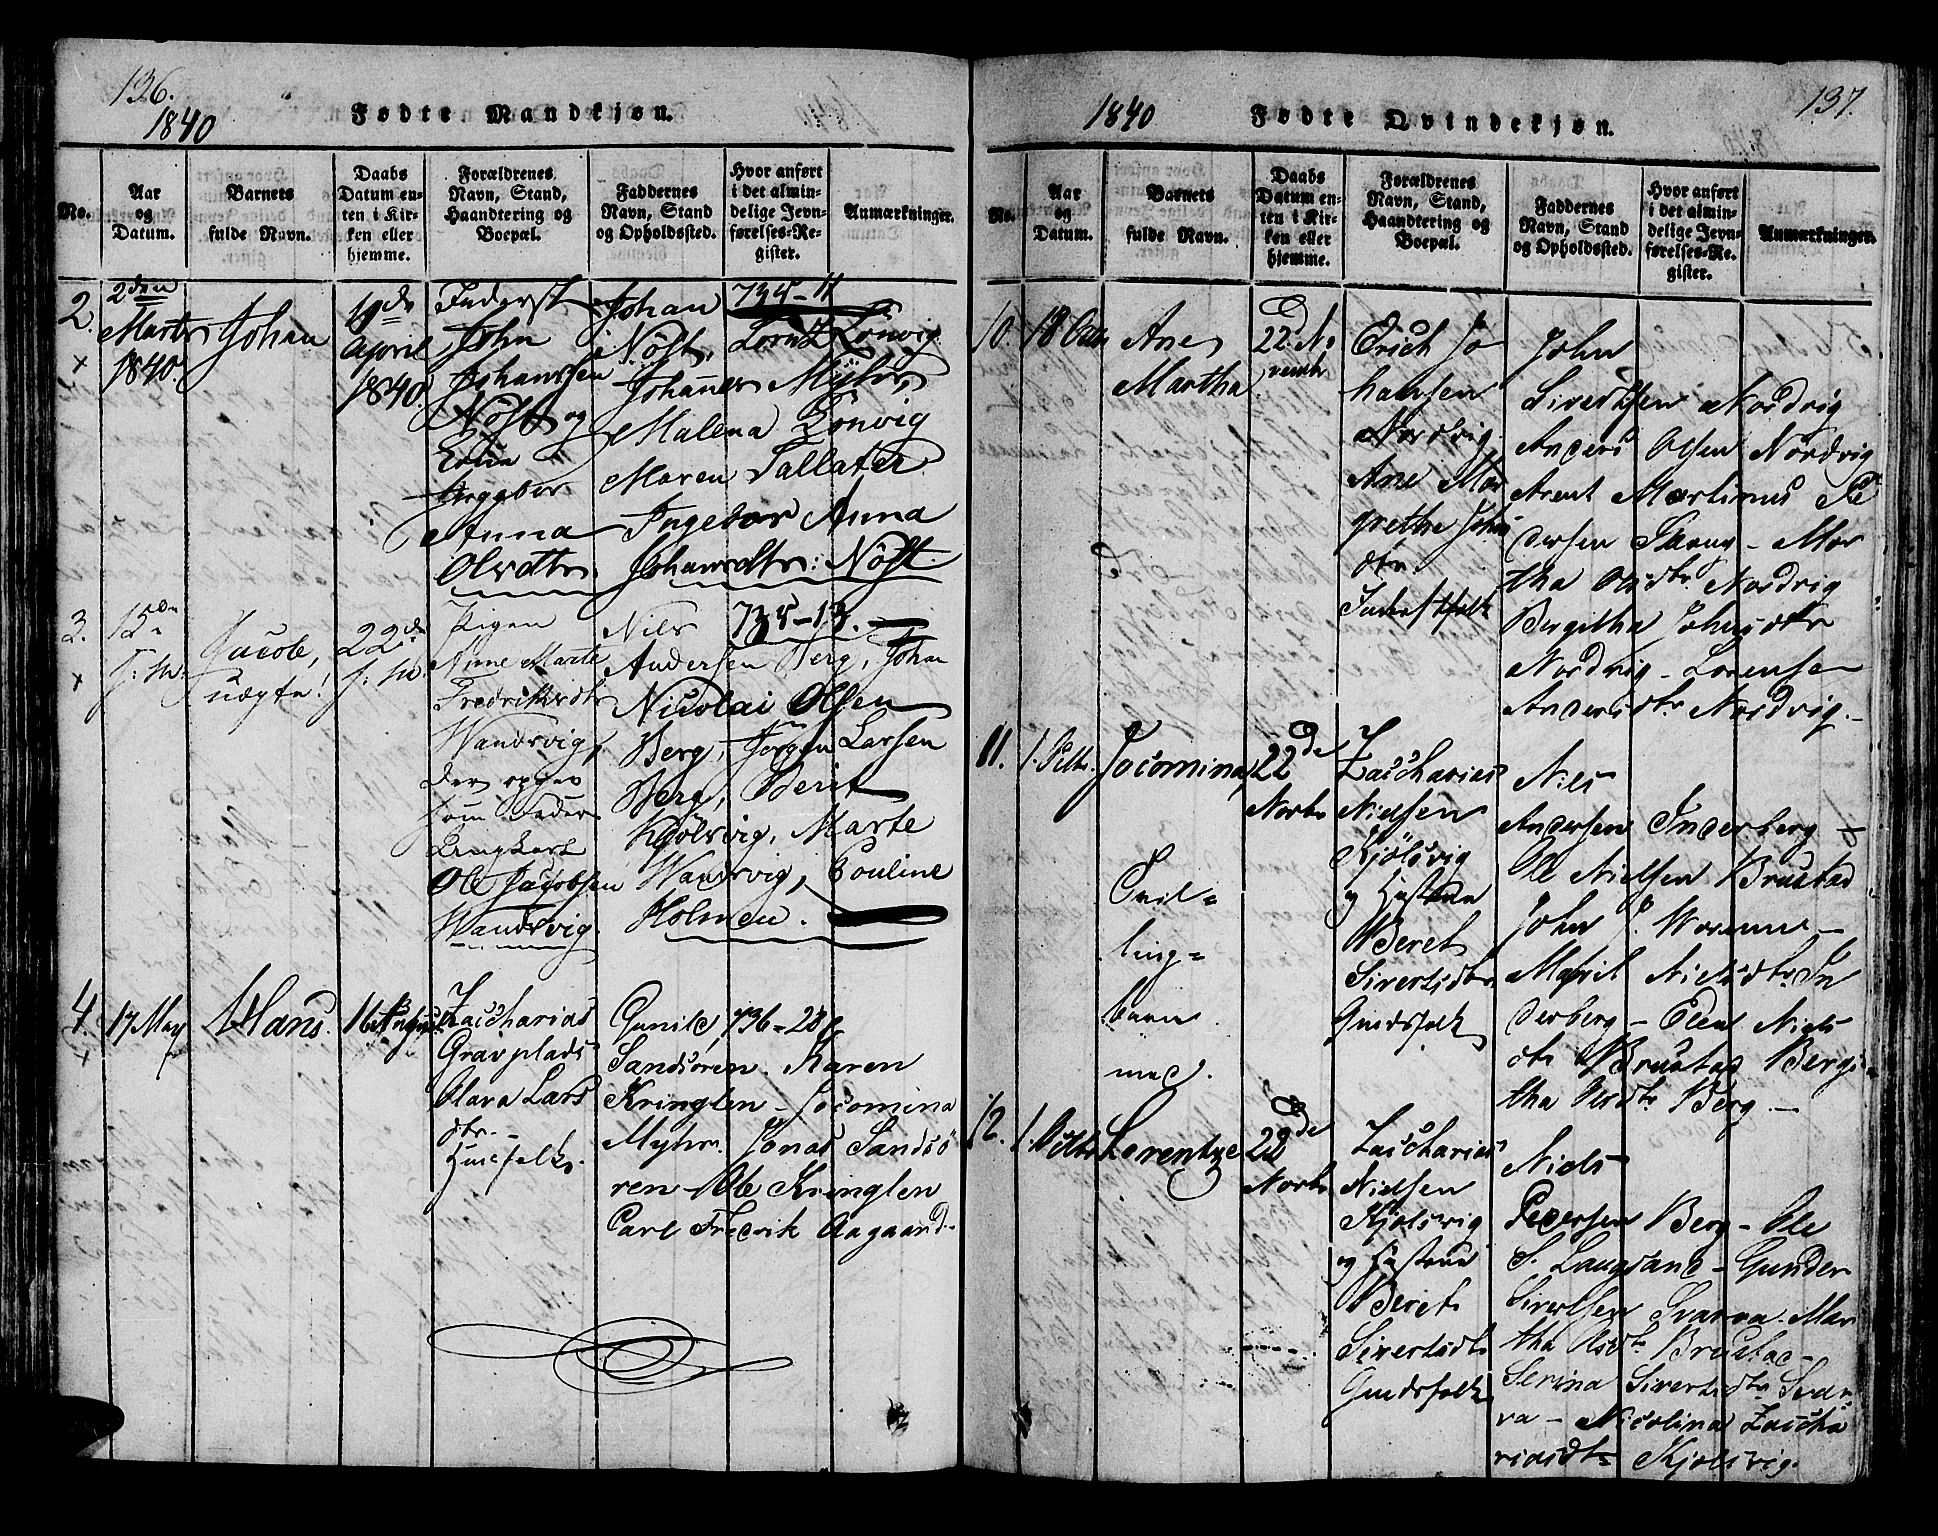 136.
1840
Fødte Mandkjøn.
No.
Aar og Datum.
Barnets fulde Navn.
Daabs Datum enten i Kirken eller hjemme.
Forældrenes Navn, Stand, Haandtering og Boepæl.
Faddernes Navn, Stand og Opholdssted.
Hvor anført i det almindelige Jevnførelses-Register.
Anmærkninger.
2.
2den
Marts
1840.
Johan
19de
April
1840.
Inderst
John
Johanssen
Nöst og
Kone
Ingebor
Anna
Olsdttr.
735-11
Johan
Nöst, Lorntz Lönvig
Johannes Myhr,
Malena Lönvig
Maren Sallater
Ingebor Anna
Johansdtr: Nöst.
3.
15de
Jacob,
uægte!
22de
Pigen
Anne Marte
Fredriksdtr
Wandsvig,
der opgav
som Fader
Ungkarl
Ole Jacobsen
Wandsvig.
735-13.
Nils
Andersen Berg, Johan
Nicolai Olsen
Berg, Jörgen Larsen
Berg, Berit
Kjölsvig, Marte
Wandsvig, Pouline
Holmen.
4.
17 May
Hans.
16 August
Zaccharias
Gravplads
Olava Lars
dtr.
Huusfolk.
736-28
Gunild
Sandsören. Karen
Kringlen - Jocomina
Myhr. Jonas Sandsö
ren - Ole Kringlen
Carl Fredrik Aagaard.
137.
1840
Fødte Qvindekjøn.
No.
Aar og Datum.
Barnets fulde Navn.
Daabs Datum enten i Kirken eller hjemme.
Forældrenes Navn, Stand, Haandtering og Boepæl.
Faddernes Navn, Stand og Opholdssted.
Hvor anført i det almindelige Jevnførelses-Register.
Anmærkninger.
10.
Ane
Martha
22 No
vembr
Erich Jo
hansen
Nordvig
Ane Mar
gretha Johns
dtr.
Inderstfolk
John
Sivertsen Nordvig
Anders Olsen Nordvig
Arent Martinus Pe
dersen Skoug - Mar
tha Olsdtr Nordvig
Bergitha Johnsdtr
Nordvig - Lorense
Andersdtr Nordvig.
11.
Jocomina
22de
Novbr
Tvil=
ling=
barn
med.
Zaccharias
Nielsen
Kjölsvig
og Hustrue
Beret
Sivertsdtr
Gaardsfolk
Nils
Andersen Inderberg
Ole Nielsen Brustad
John J. Worum -
Marit Nielsdtr In
derberg - Elen Niels
dtr Brustad Bergi
tha Olsdtr Berg -
12.
1. Octbr
Lorentze
22de
Novbr
Zaccharias
Nielsen
Kjolsvig
og Hustrue
Beret
Sivertsdtr
Gaardsfolk
Niels
Pedersen Berg - Ole
S. Langsand - Gunder
Sivertsen Svarva. Mar
tha Olsdtr Brustad -
Serina Sivertsdtr Svar
va - Nicolina Zaccha
riasdtr Kjolsvig.